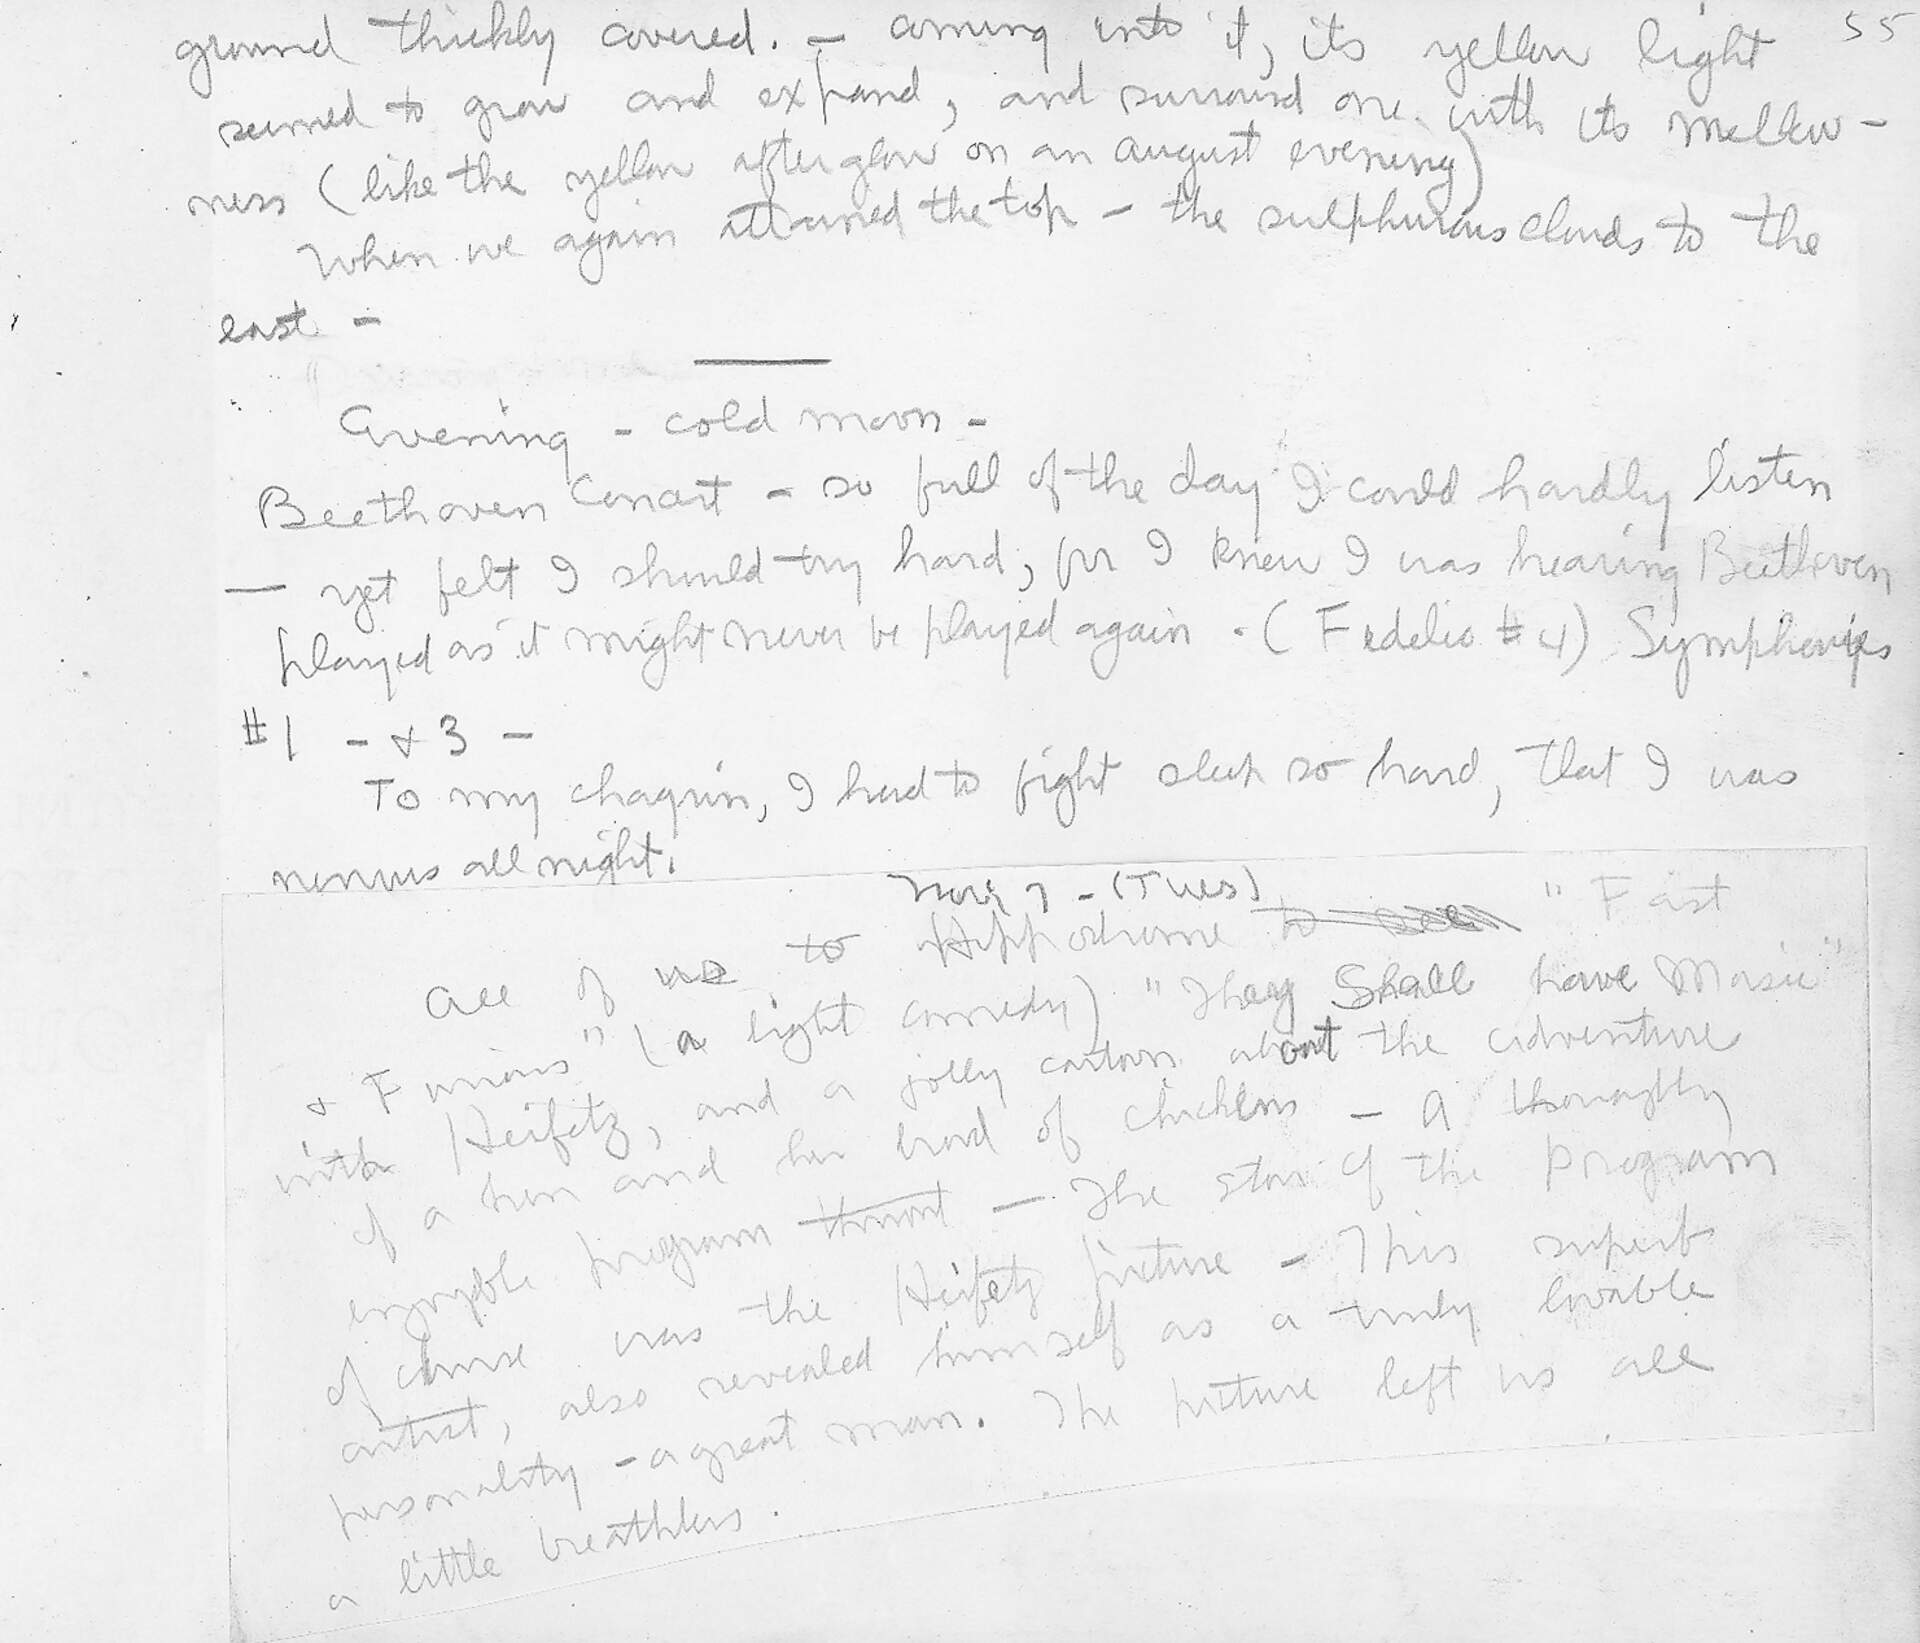 55
ground thickly covered. – coming into it, its yellow light
seemed to grow and expand, and surround one with its mellow-
ness (like the yellow afterglow on an august evening)
When we again attained the top – the sulphurous clouds to the
east –
Evening – cold moon –
Beethoven Concert – so full of the day I could hardly listen
— yet felt I should try hard, for I knew I was hearing Beethoven
played as it might never be played again. (Fidelio # 4) Symphonies
#1 – & 3 –
To my chagrin, I had to fight sleep so hard, that I was
nervous all night.
Nov 7 – (Tues)
all of us to Hippodrome to see "Fast
& Furious" (a light comedy) "They Shall have Music"
with Heifetz, and a jolly cartoon about the adventure
of a hen and her brood of chickens – a thoroughly
enjoyable program — The star of the program
of course was the Heifetz picture – This superb
artist, also revealed himself as a truly lovable
personality – a great man. The picture left us all
a little breathless.